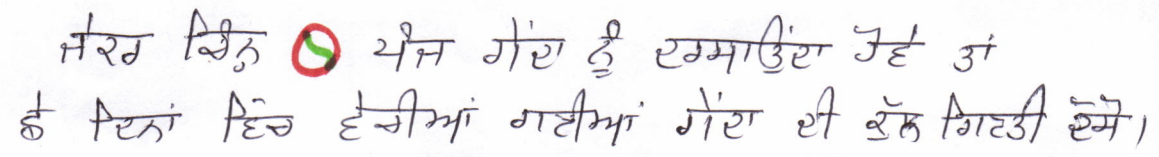 ਜੇਕਰ ਚਿੰਨ੍ਹ ਪੰਜ ਗੇਂਦਾ ਨੂੰ ਦਰਸਾਉਂਦਾ ਹੋਵੇ ਤਾਂ
ਛੇ ਦਿਨਾਂ ਵਿੱਚ ਵੇਚੀਆਂ ਗਈਆਂ ਗੇਂਦਾ ਦੀ ਕੁੱਲ ਗਿਣਤੀ ਦੱਸੋ।